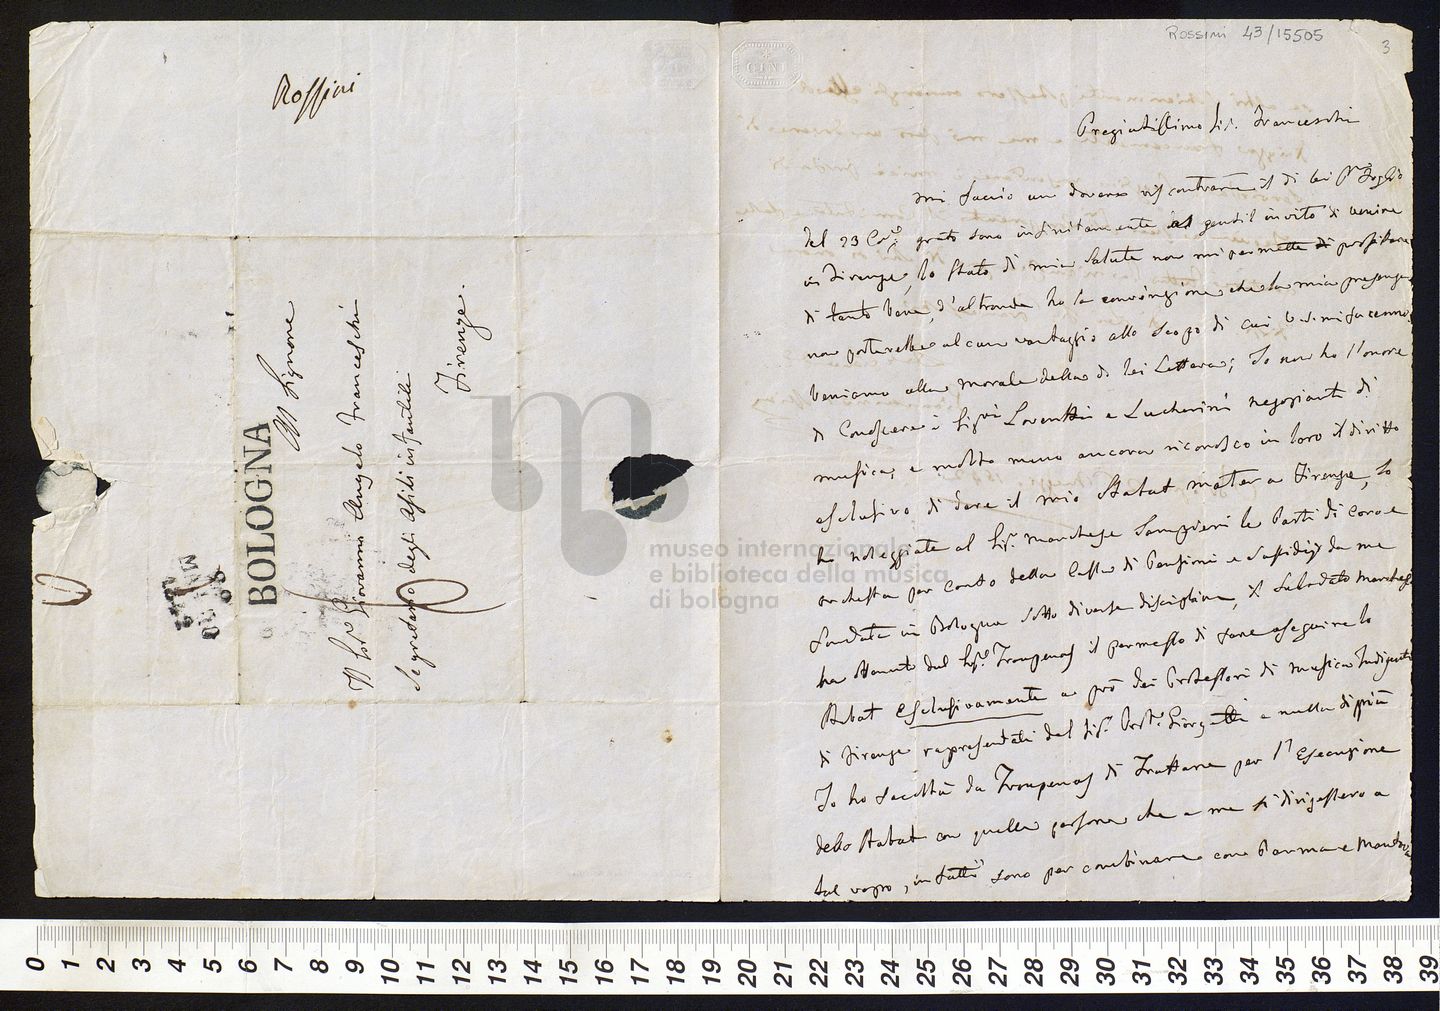 Rossini
BOLOGNA
All Signore
Il Sigr Giovanni Angelo Franceschi
Segretario degli Asili infantili
Firenze.
GINI
Rossini 43/15505
3
Pregiatissimo Sigr. Franceschi
Mi faccio un dovere riscontrare il di lei Pto foglio
del 23 Corre, grato sono infinitamente al gentil invito di venire
in Firenze, lo Stato di mia Salute non mi permette di profittare
di tanto bene, d'altronde ho la convinzione che la mia presenza
non porterebbe alcun vantaggio allo scopo di cui V.S. mi fa cenno.
Veniamo alla morale della di lei Lettera; Io non ho l'onore
di Conoscere i Sigri Lorenzi e Lucherini negozianti di
musica, e molto meno ancora riconosco in loro il diritto
esclusivo di dare il mio Stabat mater a Firenze, Io
ho noleggiate al Sigr. Marchese Sampieri le Parti di Coro e
orchestra per conto della Cassa di Pensioni e Sussidj da me
fondata in Bologna sotto diverse discipline, il Lodato Marchese
ha ottenuto dal Sigr. Troupenas il permesso di fare eseguire lo
Stabat esclusivamente a prò dei Professori di musica Indigenti
di Firenze rappresentati dal Sigr. Profr. Giorgetti e nulla di più
Io ho facoltà da Troupenas di Trattare per l'Esecuzione
dello Stabat con quelle persone che a me si dirigessero a
tal uopo, in fatti sono per combinare con Parma e Mantova
museo internazionale
e biblioteca della musica
di bologna
0 1 2 3 4 5 6 7 8 9 10 11 12 13 14 15 16 17 18 19 20 21 22 23 24 25 26 27 28 29 30 31 32 33 34 35 36 37 38 39